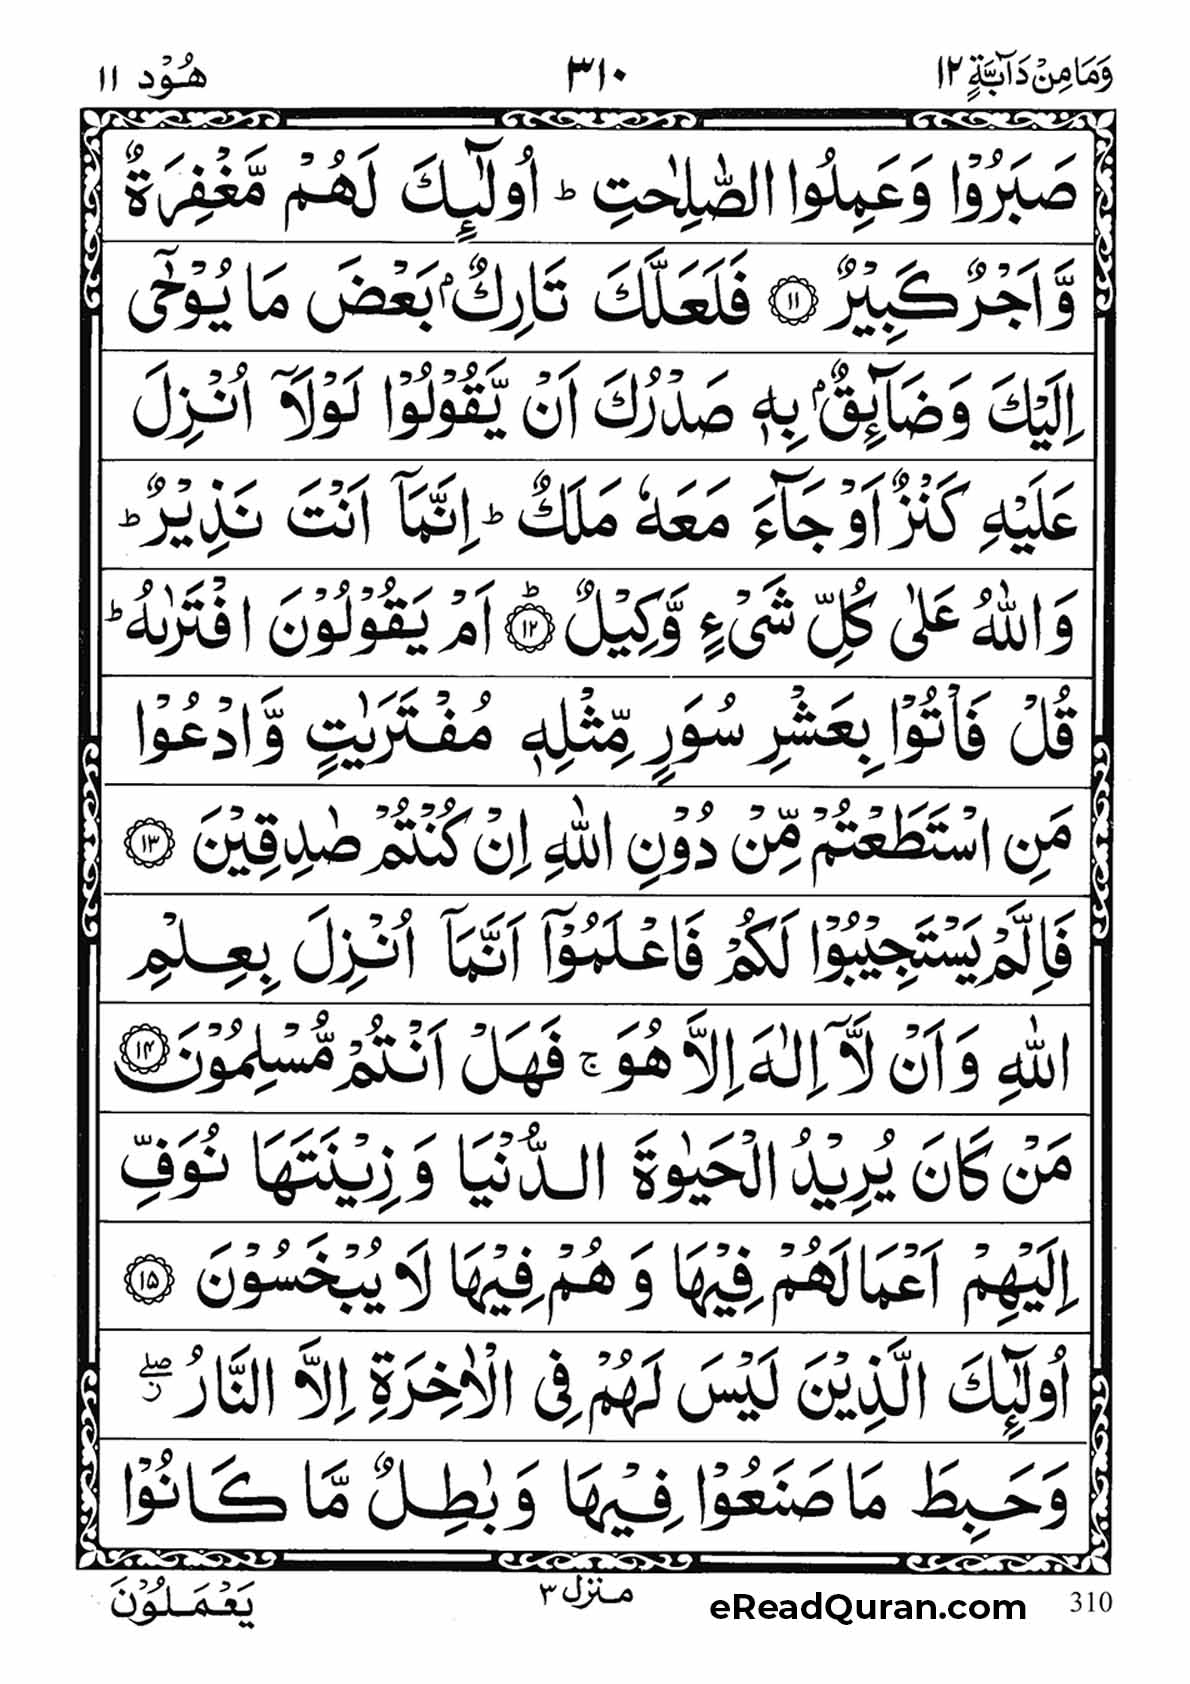 وَمَا مِنْ دَآبَّةٍ ١٢ ٣١٠ هُوْد ١١
صَبَرُوْا وَعَمِلُوا الصّٰلِحٰتِ ؕ اُولٰٓئِكَ لَهُمْ مَّغْفِرَةٌ
وَّاَجْرٌ كَبِيْرٌ ﴿۱۱﴾ فَلَعَلَّكَ تَارِكٌۢ بَعْضَ مَا يُوْحٰٓى
اِلَيْكَ وَضَآئِقٌۢ بِهٖ صَدْرُكَ اَنْ يَّقُوْلُوْا لَوْلَاۤ اُنْزِلَ
عَلَيْهِ كَنْزٌ اَوْ جَآءَ مَعَهٗ مَلَكٌ ؕ اِنَّمَاۤ اَنْتَ نَذِيْرٌ ؕ
وَاللّٰهُ عَلٰى كُلِّ شَىْءٍ وَّكِيْلٌ ؕ﴿۱۲﴾ اَمْ يَقُوْلُوْنَ افْتَرٰىهُ ؕ
قُلْ فَاْتُوْا بِعَشْرِ سُوَرٍ مِّثْلِهٖ مُفْتَرَيٰتٍ وَّادْعُوْا
مَنِ اسْتَطَعْتُمْ مِّنْ دُوْنِ اللّٰهِ اِنْ كُنْتُمْ صٰدِقِيْنَ ﴿۱۳﴾
فَاِلَّمْ يَسْتَجِيْبُوْا لَكُمْ فَاعْلَمُوْۤا اَنَّمَاۤ اُنْزِلَ بِعِلْمِ
اللّٰهِ وَاَنْ لَّاۤ اِلٰهَ اِلَّا هُوَ ۚ فَهَلْ اَنْتُمْ مُّسْلِمُوْنَ ﴿۱۴﴾
مَنْ كَانَ يُرِيْدُ الْحَيٰوةَ الدُّنْيَا وَ زِيْنَتَهَا نُوَفِّ
اِلَيْهِمْ اَعْمَالَهُمْ فِيْهَا وَ هُمْ فِيْهَا لَا يُبْخَسُوْنَ ﴿۱۵﴾
اُولٰٓئِكَ الَّذِيْنَ لَيْسَ لَهُمْ فِى الْاٰخِرَةِ اِلَّا النَّارُ ۖ ز
وَحَبِطَ مَا صَنَعُوْا فِيْهَا وَ بٰطِلٌ مَّا كَانُوْا
يَعْمَلُوْنَ منزل ٣ eReadQuran.com 310